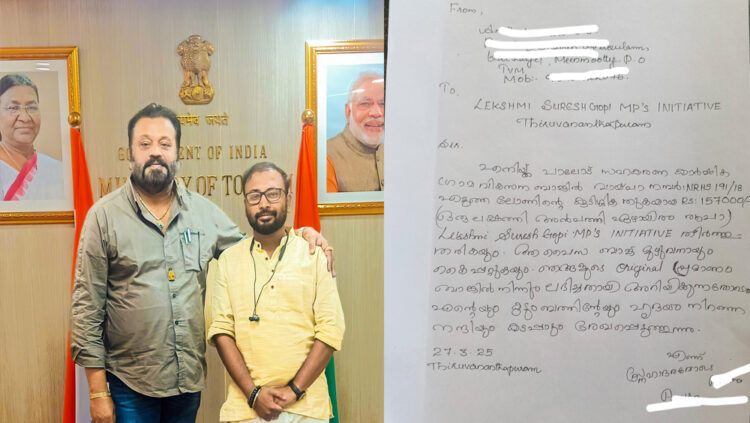 सत्यमेव जयते
GOVERNMENT OF INDIA
MINISTRY OF TO
From,
Meenmootty P.O
TVM
Mob:
To
LEKSHMI SURESH Gopi MP'S INITIATIVE
Thiruvananthapuram
Sir.
എനിക്ക് പാലോട് സഹകരണ കാർഷിക
ഗ്രാമ വികസന ബാങ്കിൽ വായ്പാ നമ്പർ: MRHS 191/18
ലോണിന്റെ കുടിശ്ശിക തുകയായ RS: 157000/-
(ഒരു ലക്ഷത്തി അൻപത്തി ഏഴായിരം രൂപാ)
Lekshmi Suresh Gopi MP's INITIATIVE
തരികയും. ആ പൈസ ബാങ്ക്
കൈപ്പറ്റുകയും. ഞങ്ങളുടെ Original പ്രമാണം
ബാങ്കിൽ നിന്നും ലഭിച്ചതായി അറിയിക്കുന്നതോടൊ
എന്റെയും കുടുംബത്തിന്റേയും ഹൃദയം നിറഞ്ഞ
നന്ദിയും കടപ്പാടും രേഖപ്പെടുത്തുന്നു.
27.3.25
Thiruvananthapuram
എന്ന്
സ്നേഹാദരങ്ങളോടെ